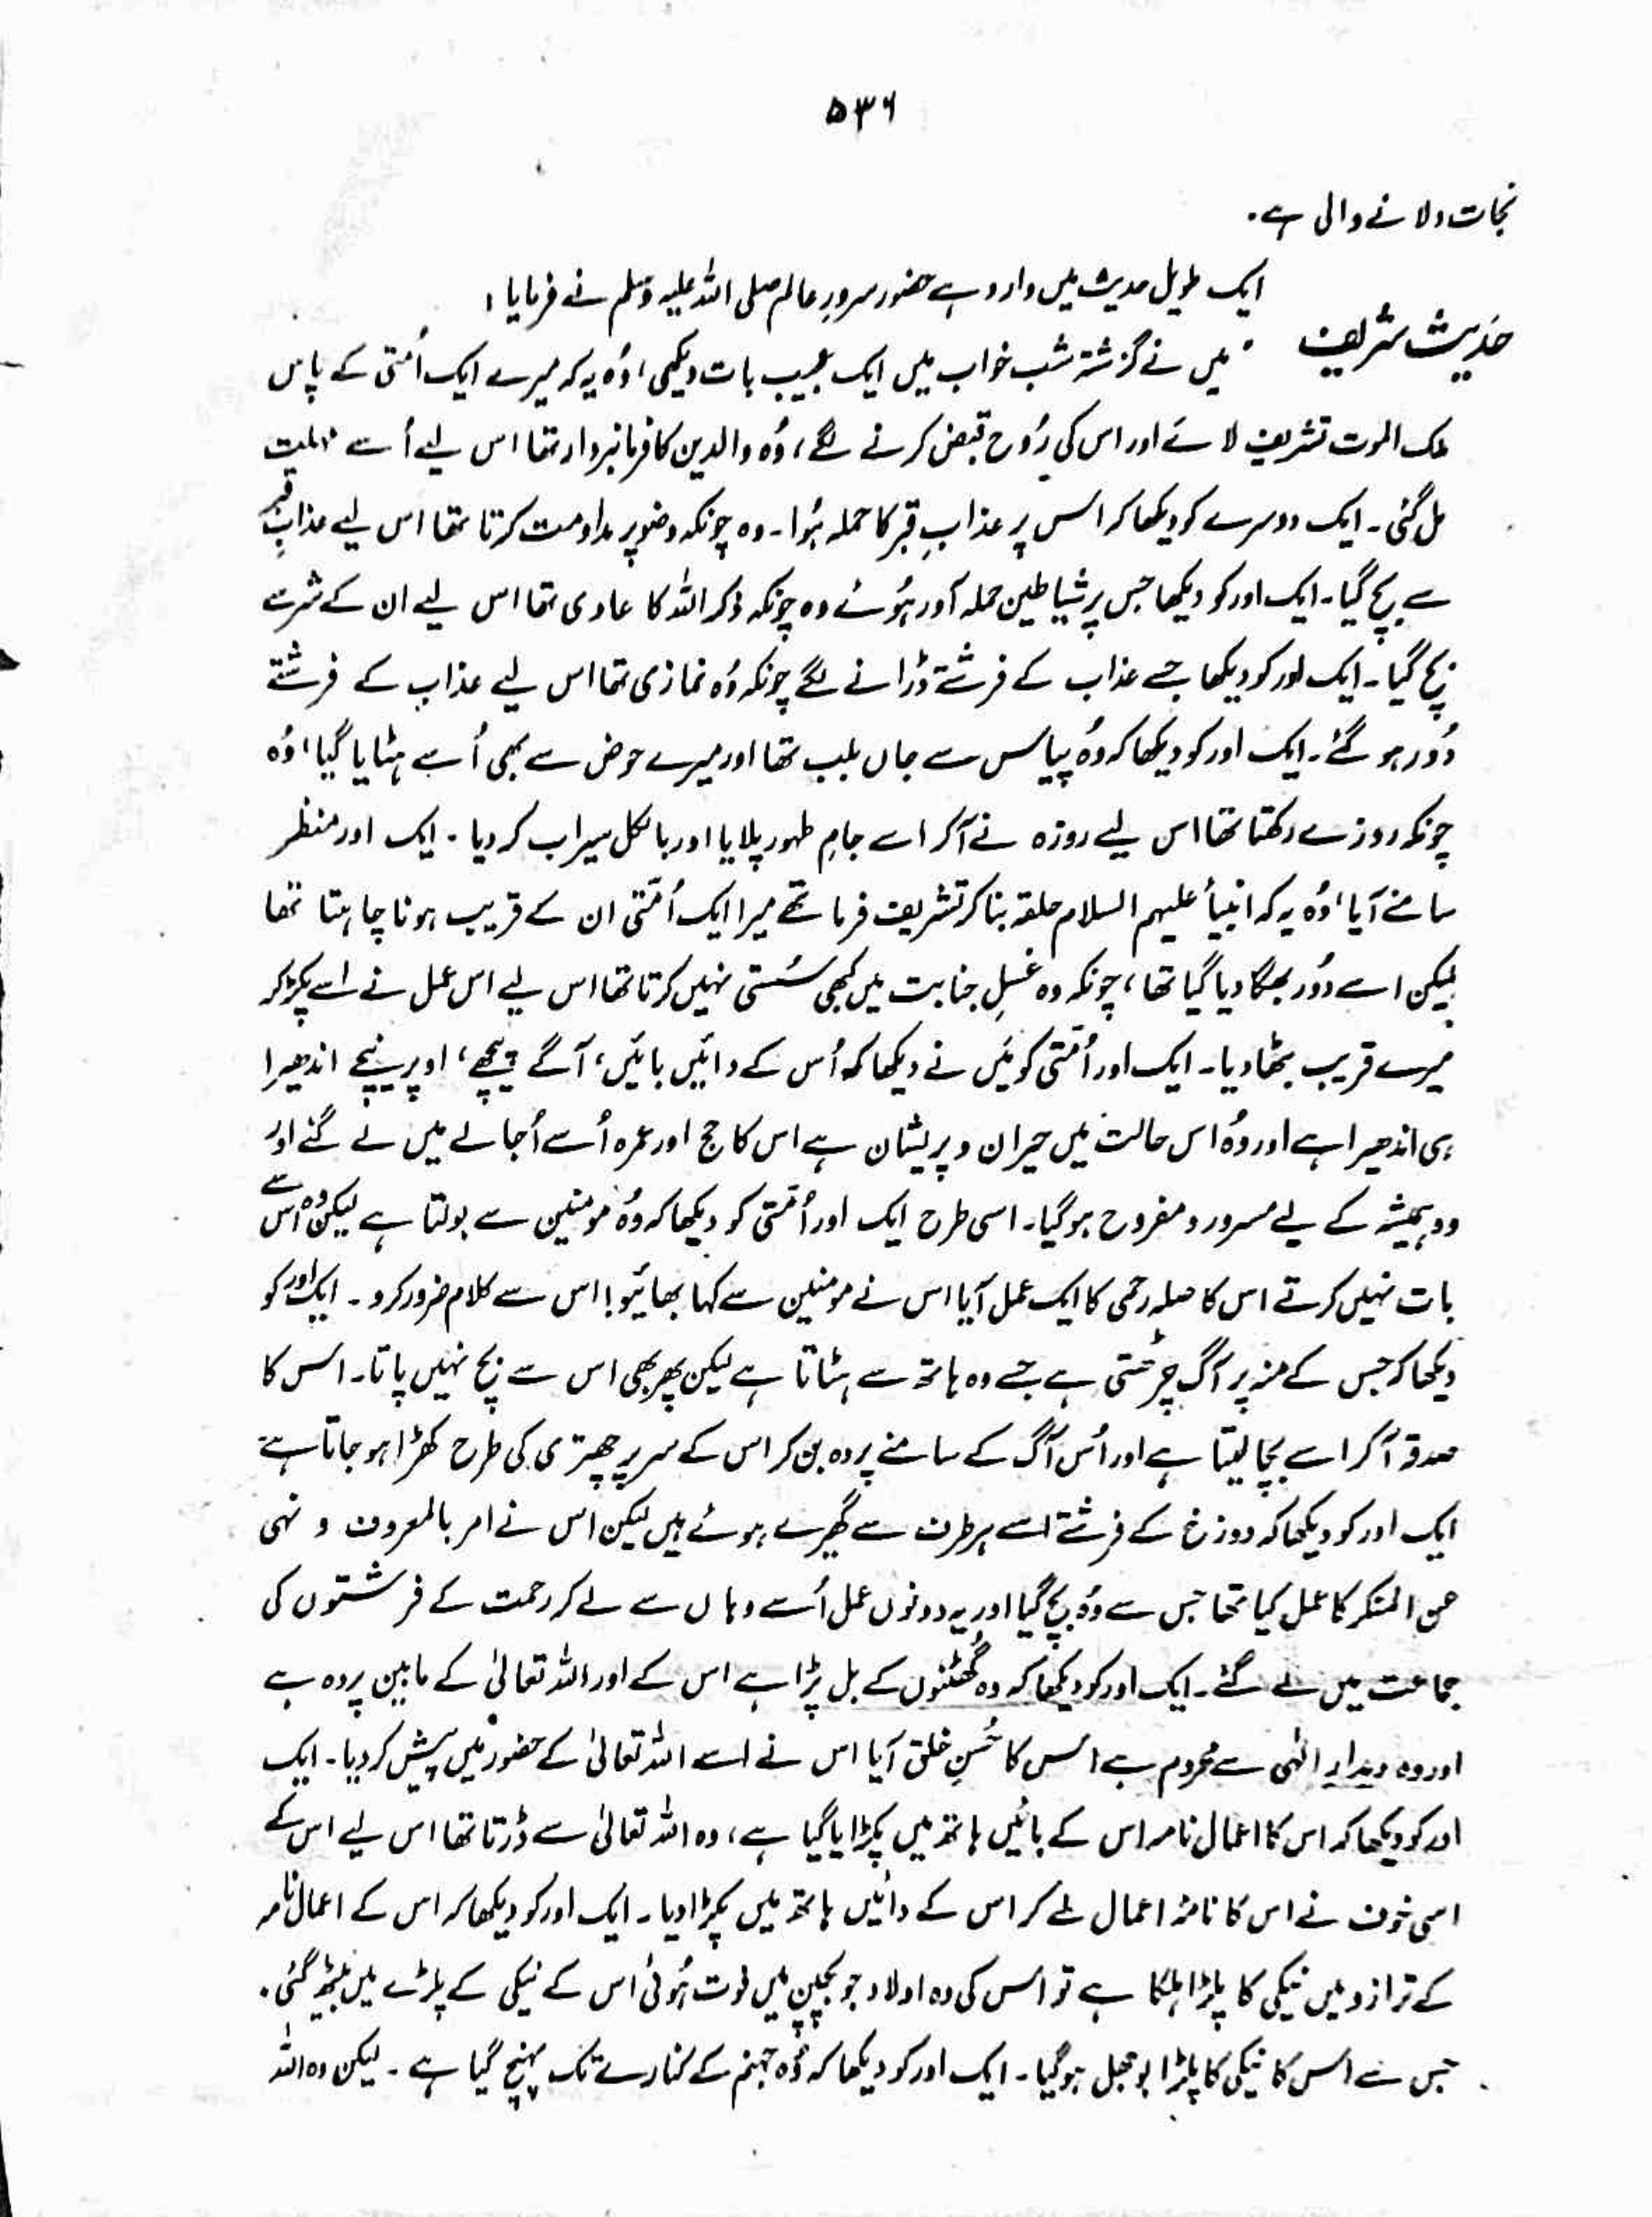 ۵۳۶
نجات دلانے والی ہے۔
ایک طویل حدیث میں وارد ہے حضور سرورِ عالم صلی اللہ علیہ وسلم نے فرمایا:
حدیث شریف
میں نے گزشتہ شب خواب میں ایک عجیب بات دیکھی، وُہ یہ کہ میرے ایک اُمتی کے پاس
ملک الموت تشریف لائے اور اس کی رُوح قبض کرنے لگے، وُہ والدین کا فرمانبردار تھا اس لیے اُسے مہلت
مل گئی۔ ایک دوسرے کو دیکھا کہ اس پر عذابِ قبر کا حملہ ہُوا۔ وہ چونکہ وضو پر مداومت کرتا تھا اس لیے عذابِ قبر
سے بچ گیا۔ ایک اور کو دیکھا جس پر شیاطین حملہ آور ہُوئے وہ چونکہ ذکر اللہ کا عادی تھا اس لیے ان کے شر سے
بچ گیا۔ ایک اور کو دیکھا جسے عذاب کے فرشتے ڈرانے لگے چونکہ وُہ نمازی تھا اس لیے عذاب کے فرشتے
دُور ہو گئے۔ ایک اور کو دیکھا کہ وُہ پیاس سے جاں بلب تھا اور میرے حوض سے بھی اُسے ہٹایا گیا، وُہ
چونکہ روزے رکھتا تھا اس لیے روزہ نے آکر اسے جامِ طہور پلایا اور بالکل سیراب کر دیا۔ ایک اور منظر
سامنے آیا، وُہ یہ کہ انبیاٴ علیہم السلام حلقہ بنا کر تشریف فرما تھے میرا ایک اُمّتی ان کے قریب ہونا چاہتا تھا
لیکن اسے دُور بھگا دیا گیا تھا، چونکہ وہ غسلِ جنابت میں کبھی سُستی نہیں کرتا تھا اس لیے اس عمل نے اسے پکڑ کر
میرے قریب بٹھا دیا۔ ایک اور اُمّتی کو مَیں نے دیکھا کہ اُس کے دائیں بائیں، آگے پیچھے، اوپر نیچے اندھیرا
ہی اندھیرا ہے اور وُہ اس حالت میں حیران و پریشان ہے اس کا حج اور عمرہ اُسے اُجالے میں لے گئے اور
وہ ہمیشہ کے لیے مسرور و مفروح ہو گیا۔ اسی طرح ایک اور اُمّتی کو دیکھا کہ وُہ مومنین سے بولتا ہے لیکن وُہ اس سے
بات نہیں کرتے اس کا صلہ رحمی کا ایک عمل آیا اس نے مومنین سے کہا بھائیو! اس سے کلام ضرور کرو۔ ایک اور کو
دیکھا کہ جس کے منہ پر آگ چڑھتی ہے جسے وہ ہاتھ سے ہٹاتا ہے لیکن پھر بھی اس سے بچ نہیں پاتا۔ اس کا
صدقہ آکر اسے بچا لیتا ہے اور اُس آگ کے سامنے پردہ بن کر اس کے سر پر چھتری کی طرح کھڑا ہو جاتا ہے
ایک اور کو دیکھا کہ دوزخ کے فرشتے اسے ہر طرف سے گھیرے ہوئے ہیں لیکن اس نے امر بالمعروف و نہی
عن المنکر کا عمل کیا تھا جس سے وُہ بچ گیا اور یہ دونوں عمل اُسے وہاں سے لے کر رحمت کے فرشتوں کی
جماعت میں لے گئے۔ ایک اور کو دیکھا کہ وہ گھٹنوں کے بل پڑا ہے اس کے اور اللہ تعالیٰ کے مابین پردہ ہے
اور وہ دیدارِ الٰہی سے محروم ہے اس کا حُسنِ خلق آیا اس نے اسے اللہ تعالیٰ کے حضور میں پیش کر دیا۔ ایک
اور کو دیکھا کہ اس کا اعمال نامہ اس کے بائیں ہاتھ میں پکڑایا گیا ہے، وہ اللہ تعالیٰ سے ڈرتا تھا اس لیے اس کے
اسی خوف نے اس کا نامۂ اعمال لے کر اس کے دائیں ہاتھ میں پکڑا دیا۔ ایک اور کو دیکھا کہ اس کے اعمال نامہ
کے ترازو میں نیکی کا پلڑا ہلکا ہے تو اس کی وہ اولاد جو بچپن میں فوت ہُوئی اس کے نیکی کے پلڑے میں بیٹھ گئی۔
جس سے اس کا نیکی کا پلڑا بوجھل ہو گیا۔ ایک اور کو دیکھا کہ وُہ جہنم کے کنارے تک پہنچ گیا ہے۔ لیکن وہ اللہ